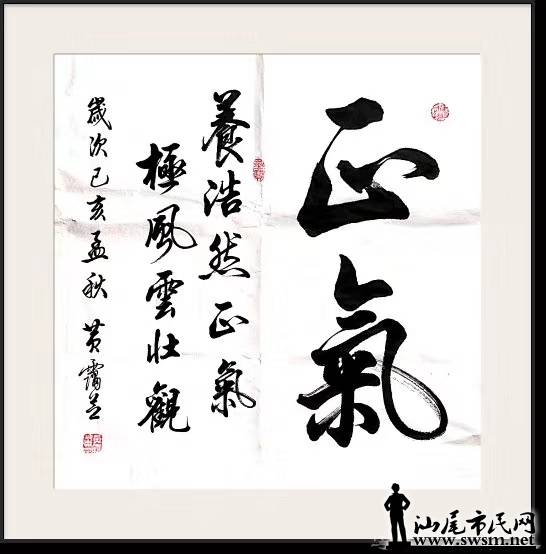 正氣
養浩然正氣
極風雲壯觀
歲次己亥孟秋 黄霭
汕尾市民网
www.swsm.net